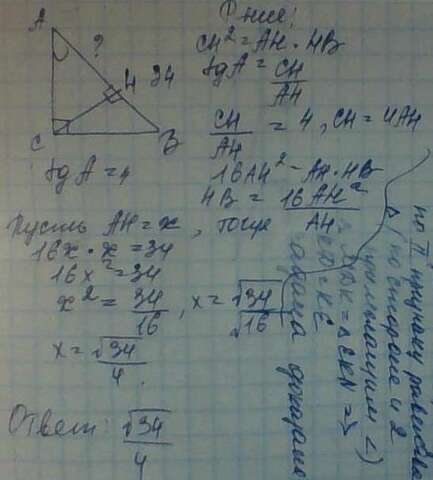 A
?
H
34
C
B
tg A = 4
Р-ние:
CH² = AH · HB
tg A = CH/AH
CH/AH = 4, CH = 4AH
16AH² = AH · HB
HB = 16AH²/AH
Пусть AH = x, тогда
16x · x = 34
16x² = 34
x² = 34/16, x = √34/√16
x = √34/4.
Ответ: √34/4
по II признаку равенства
Δ (по стороне и 2
прилежащим ∠)